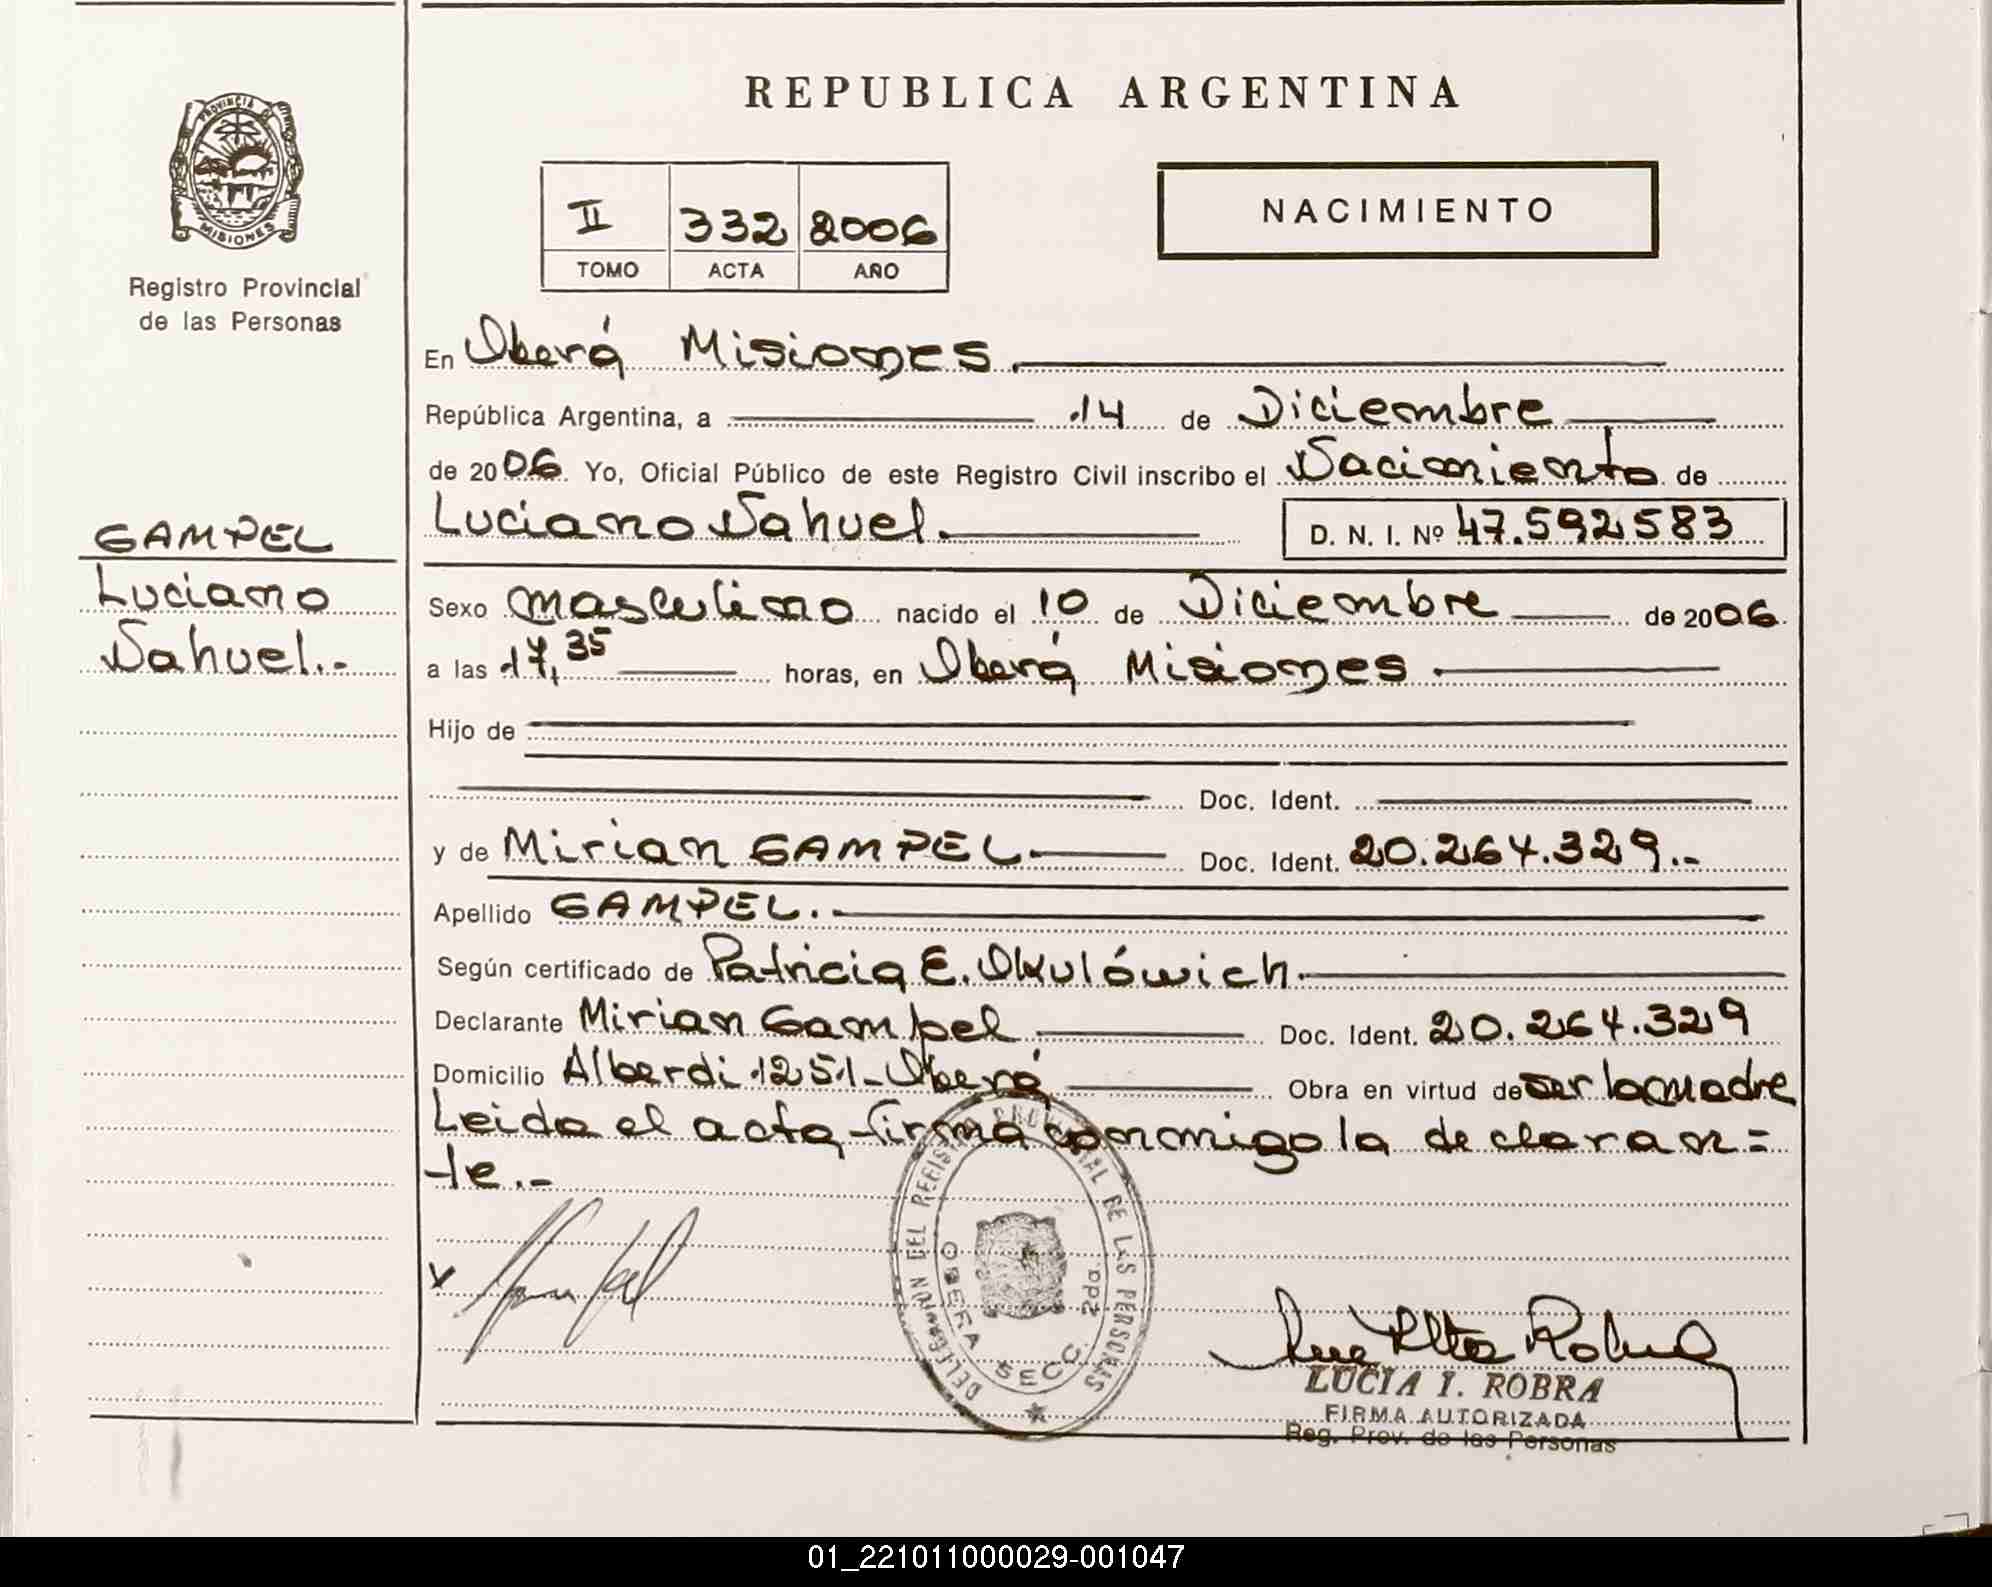 REPUBLICA ARGENTINA
PROVINCIA DE
MISIONES
Registro Provincial
de las Personas
II 332 2006
TOMO ACTA AÑO
NACIMIENTO
En Oberá Misiones.
República Argentina, a 14 de Diciembre
de 2006. Yo, Oficial Público de este Registro Civil inscribo el Nacimiento de
Luciano Nahuel. D. N. I. Nº 47.592583
GAMPEL
Luciano
Nahuel.-
Sexo masculino nacido el 10 de Diciembre de 2006.
a las 17,35 horas, en Oberá Misiones
Hijo de
Doc. Ident.
y de Mirian GAMPEL Doc. Ident. 20.264.329.-
Apellido GAMPEL.
Según certificado de Patricia E. Okulówich.
Declarante Mirian Gampel Doc. Ident. 20.264.329
Domicilio Alberdi 1251-Oberá Obra en virtud de ser la madre
Leida el acta firma conmigo la declaran=
te.-
DELEGACION DEL REGISTRO PROVINCIAL DE LAS PERSONAS
OBERA SECC. 2da.
LUCIA I. ROBRA
FIRMA AUTORIZADA
Reg. Prov. de las Personas
01_221011000029-001047